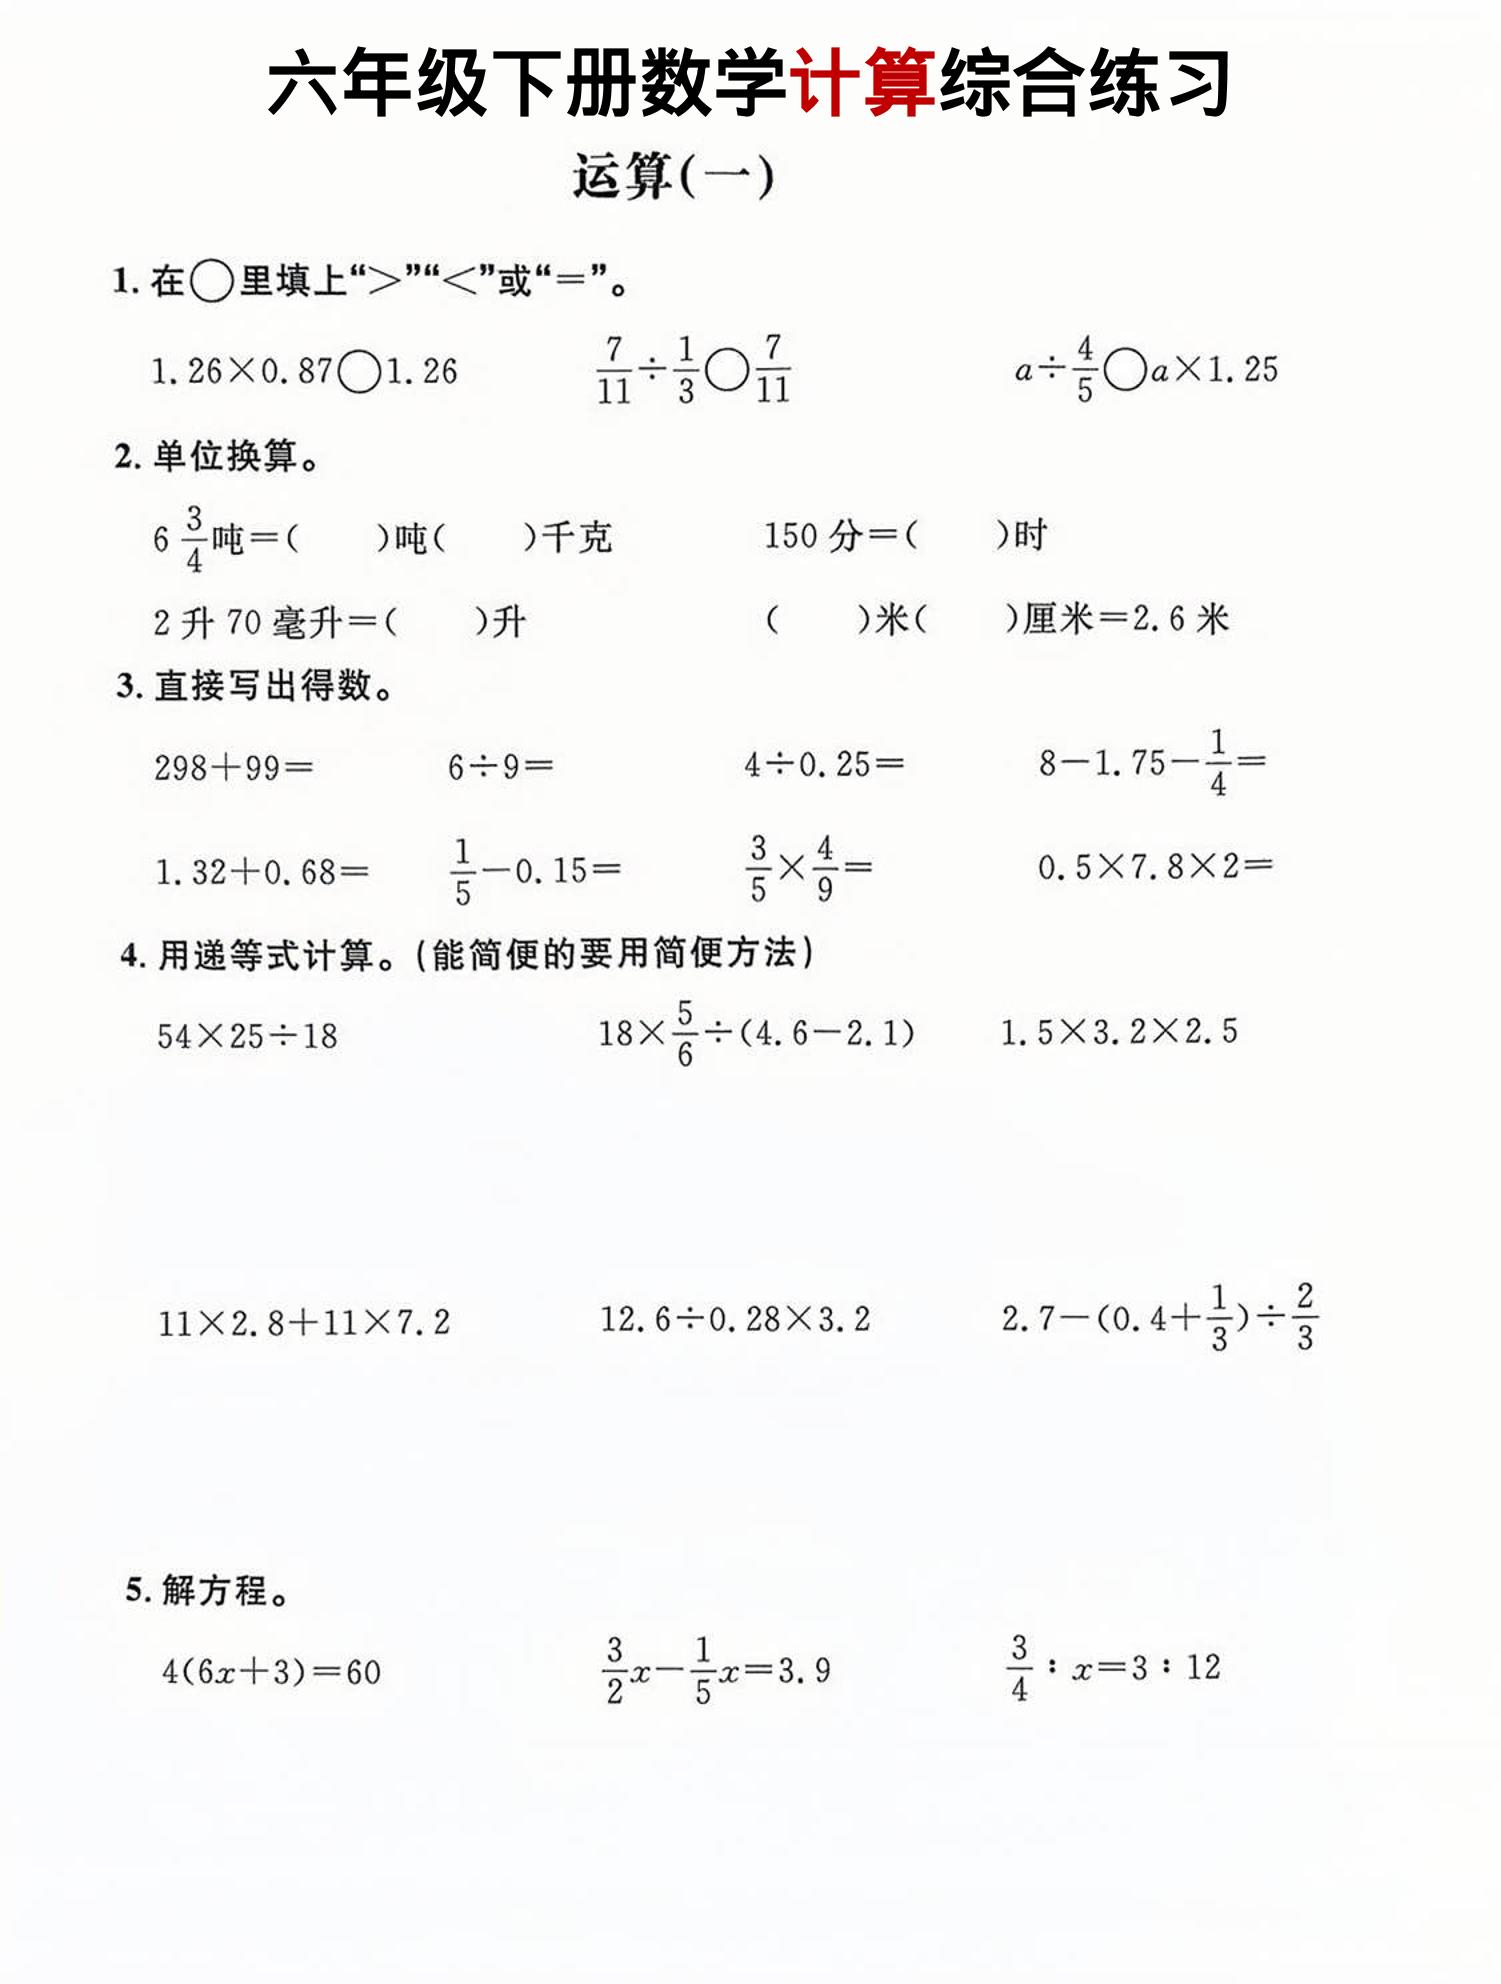 六年级下册数学计算综合练习
运算(一)
1. 在○里填上“>”“<”或“=”。
1.26×0.87○1.26 7/11÷1/3○7/11 a÷4/5○a×1.25
2. 单位换算。
6 3/4吨=( )吨( )千克 150 分=( )时
2 升 70 毫升=( )升 ( )米( )厘米=2.6 米
3. 直接写出得数。
298+99= 6÷9= 4÷0.25= 8-1.75-1/4=
1.32+0.68= 1/5-0.15= 3/5×4/9= 0.5×7.8×2=
4. 用递等式计算。(能简便的要用简便方法)
54×25÷18 18×5/6÷(4.6-2.1) 1.5×3.2×2.5
11×2.8+11×7.2 12.6÷0.28×3.2 2.7-(0.4+1/3)÷2/3
5. 解方程。
4(6x+3)=60 3/2x-1/5x=3.9 3/4:x=3:12